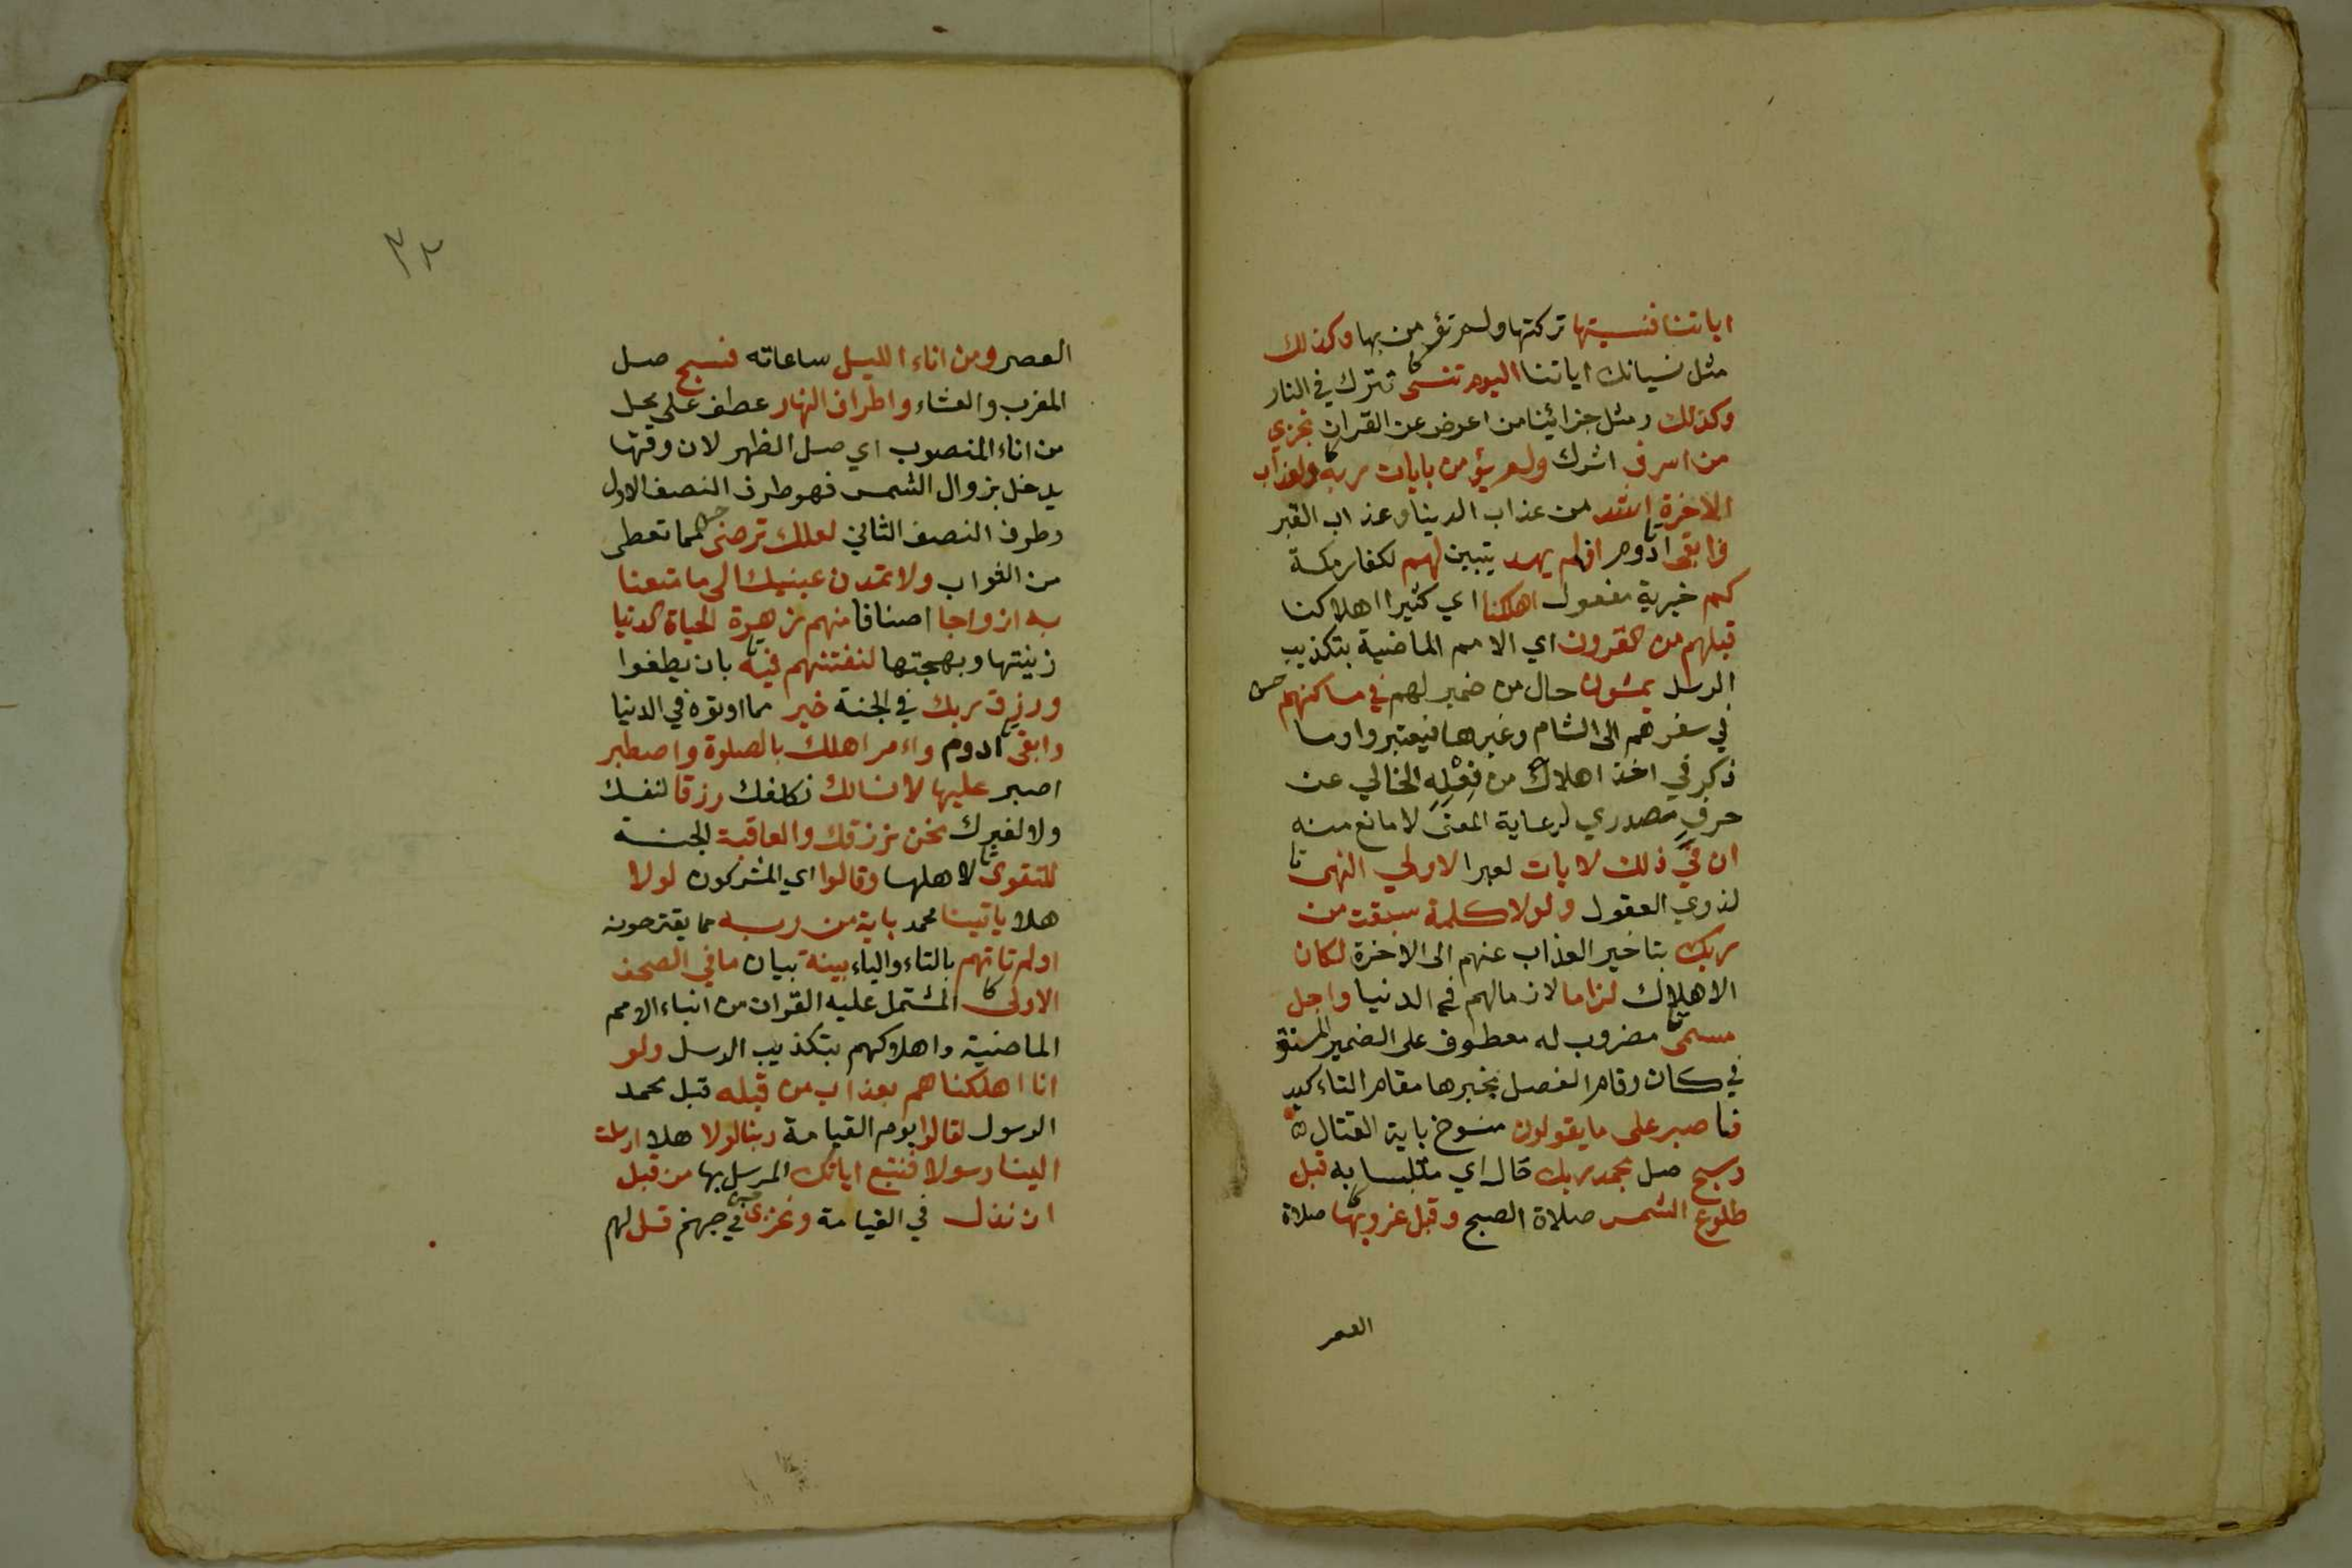 اياتنا فنسيتها تركتها ولم تؤمن بها وكذلك
مثل نسيانك اياتنا اليوم تنسى تترك في النار
وكذلك ومثل جزائينا من اعرض عن القران نجزي
من اسرف اشرك ولم يؤمن بايات ربه ولعذاب
الاخرة اشد من عذاب الدنيا وعذاب القبر
وابقى ادوم افلم يهد يتبين لهم لكفار مكة
كم خبرية مفعول اهلكنا اي كثيرا اهلاكنا
قبلهم من القرون اي الامم الماضية بتكذيب
الرسل يمشون حال من ضمير لهم في مساكنهم
في سفرهم الى الشام وغيرها فيعتبروا وما
ذكر في اخذ اهلاك من فِعْلِهِ الخالي عن
حرف مصدري لرعاية المعنى لا مانع منه
ان في ذلك لايات لعبرا لاولي النهى
لذوي العقول ولولا كلمة سبقت من
ربك بتاخير العذاب عنهم الى الاخرة لكان
الاهلاك لزاما لازمالهم في الدنيا واجل
مسمى مضروب له معطوف على الضمير المستتر
في كان وقام الفصل بخبرها مقام التاءكيد
فاصبر على ما يقولون منسوخ باية القتال
وسبح صل بحمد ربك حال اي متلبسا به قبل
طلوع الشمس صلاة الصبح وقبل غروبها صلاة
العصر
٣٢
العصر ومن اناء الليل ساعاته فسبح صل
المغرب والعشاء واطراف النهار عطف على محل
من اناء المنصوب اي صل الظهر لان وقتها
يدخل بزوال الشمس فهو طرف النصف الاول
وطرف النصف الثاني لعلك ترضى بما تعطى
من الثواب ولا تمدن عينيك الى ما متعنا
به ازواجا اصنافا منهم زهرة الحياة الدنيا
زينتها وبهجتها لنفتنهم فيه بان يطغوا
ورزق ربك في الجنة خير مما اوتوه في الدنيا
وابقى ادوم واءمر اهلك بالصلوة واصطبر
اصبر عليها لا نسالك نكلفك رزقا لنفسك
ولا لغيرك نحن نرزقك والعاقبة الجنة
للتقوى لاهلها وقالوا اي المشركون لولا
هلا ياتينا محمد باية من ربه مما يقترحونه
اولم تاتهم بالتاء والياء بينة بيان ما في الصحف
الاولى المشتمل عليه القران من انباء الامم
الماضية واهلاكهم بتكذيب الرسل ولو
انا اهلكناهم بعذاب من قبله قبل محمد
الرسول لقالوا يوم القيامة ربنا لولا هلا ارسلت
الينا رسولا فنتبع اياتك المرسل بها من قبل
ان نذل في القيامة ونخزى في جهنم قل لهم